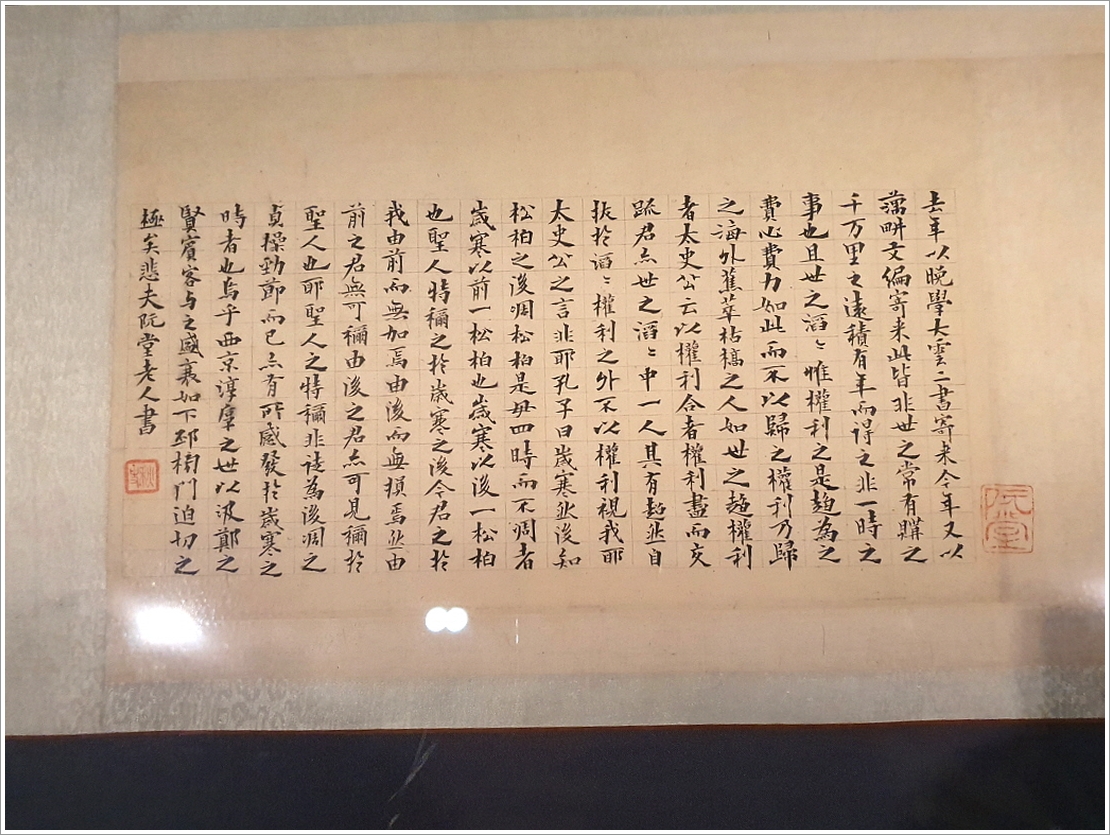 阮堂
去年以晚學大雲二書寄来今年又以
藕畊文編寄来此皆非世之常有購之
千万里之遠積有年而得之非一時之
事也且世之滔〻惟權利之是趨為之
費心費力如此而不以歸之權利乃歸
之海外蕉萃枯槁之人如世之趨權利
者太史公云以權利合者權利盡而交
踈君亦世之滔〻中一人其有超然自
拔於滔〻權利之外不以權利視我耶
太史公之言非耶孔子曰歲寒然後知
松柏之後凋松柏是毋四時而不凋者
歲寒以前一松柏也歲寒以後一松柏
也聖人特稱之於歲寒之後今君之於
我由前而無加焉由後而無損焉然由
前之君無可稱由後之君亦可見稱於
聖人也耶聖人之特稱非徒為後凋之
貞操勁節而已亦有所感發於歲寒之
時者也烏乎西京淳厖之世以汲鄭之
賢賓客与之盛衰如下邳榜門迫切之
極矣悲夫阮堂老人書